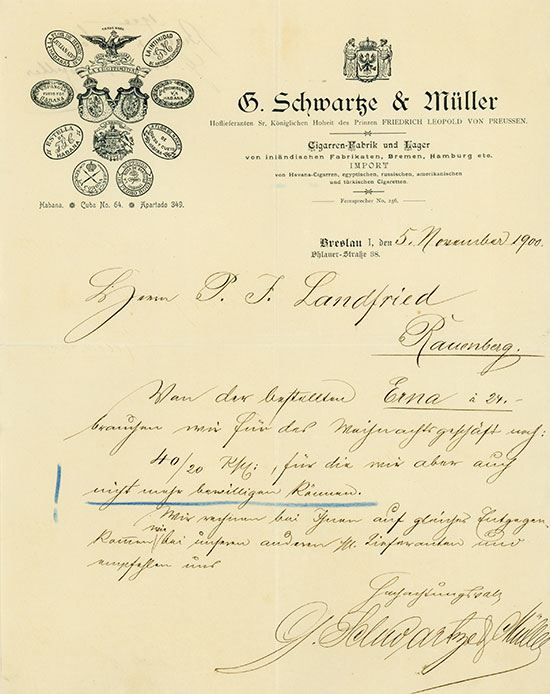 LA INTIMIDAD
LA LEGITIMIDAD
HABANA
ESTELLA
HABANA
Habana. Cuba No. 64. Apartado 349.
G. Schwartze & Müller
Hoflieferanten Sr. Königlichen Hoheit des Prinzen FRIEDRICH LEOPOLD VON PREUSSEN.
Cigarren-Fabrik und Lager
von inländischen Fabrikaten, Bremen, Hamburg etc.
IMPORT
von Havana-Cigarren, egyptischen, russischen, amerikanischen
und türkischen Cigaretten.
Fernsprecher No. 236.
Breslau I, den 5. November 1900.
Ohlauer-Straße 38.
Herrn P. J. Landfried
Rauenberg.
Von der bestellten Erna à 24.-
brauchen wir für das Weihnachtsgeschäft noch:
40/20 , für die wir aber auch
nicht mehr bewilligen können.
Wir rechnen bei Ihnen auf gleiches Entgegen-
kommen wie bei unseren anderen Lieferanten und
empfehlen uns
Hochachtungsvoll
G. Schwartze & Müller